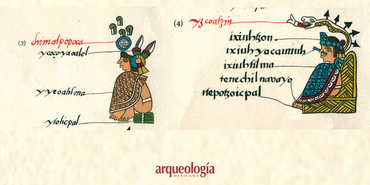 (3)
chimalpopoca
yxoxoyaoalol
yyeoahlma
ytolicpal
(4)
ytzcoatzin
ixiuhtzon
ixiuhyacamiuh
ixiuhtilma
tenechilnavayo
ytepotzoicpal
arqueología
MEXICANA